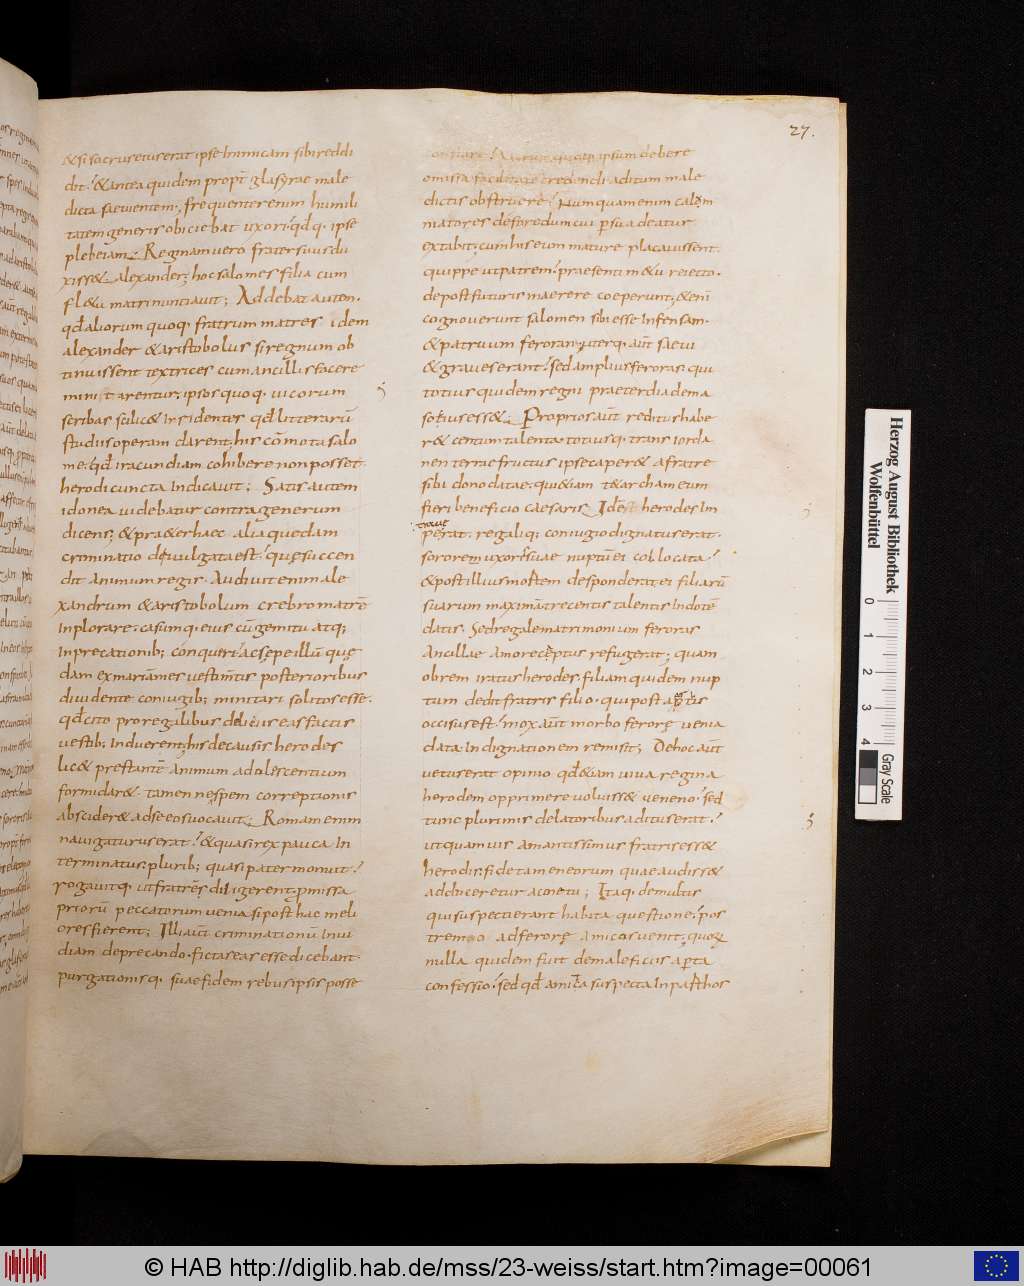 27.
& si socrus eius erat ipse inimicam sibi reddi
dit. & antea quidem propt̄ glasyrae male
dicta saeuientem, frequenter enim humili
tatem generis obiciebat uxori qd̄ q. ipse
plebeiam. Regnam uero frater suus du
xiss& alexander; hoc salomes filia cum
fl&u matri nunciauit; Addebat autem.
qd̄ aliorum quoq. fratrum matres idem
alexander & aristobolus si regnum ob
tinuissent textrices cum ancillis facere
minitarentur, ipsos quoq. uicorum
scribas scilic& irsidentes qd̄ litterarū
studiis operam darent, his cōmota salo
me. qd̄ iracundiam cohibere non posset.
herodi cuncta indicauit; Satis autem
idonea uidebatur contra generum
dicens; & pra&erhaec alia quedam
criminatio deuulgata est. quę succen
dit animum regis. Audiuit enim ale
xandrum & aristobolum crebro matrē
inplorare; casumq. eius cū gemitu atq;
in precationib; conqueri ac sępe illū quę
dam ex mariāmes uestim̄tis posterioribus
diuidente coniugib; minitari solitos esse.
qd̄ cito pro regalibus deliciis eas factis
uestib; induerent, his de causis herodes
lic& prestantē animum adolescentium
formidar& tamen ne spem correptionis
abscider& ad se eos uocauit. Romam enim
nauigaturus erat. & quasi rex pauca in
terminatus. plurib; quasi pater monuit.
rogauitq. ut fratrēs diligerent. p̄missa
priorū peccatorum uenia. si post hac meli
ores fierent; Illi aūt criminationū inui
diam deprecando. fictas eas esse dicebant.
purgationisq. suae fidem rebus ipsis posse
ipsum debere
omissa facilitate credendi aditum male
dictis obstruere. Numquam enim calom
niatores defore dum cui p̄suadeatur
extabit, cum his eum mature placauissent.
quippe ut patrem. praesenti m&u reiecto.
de post futuris maerere coeperunt; & eni
cognouerunt salomen sibi esse infensam.
& patruum feroram, uterq. aūt saeui
& graues erant. sed amplius feroras. qui
totius quidem regni praeter diadema
sotius ess&. Proprios aūt reditus habe
r& centum talenta. totiusq. trans iorda
nen terrae fructus ipse caper& a fratre
sibi dono datae. qui &iam t&archam eum
fieri beneficio caesaris. Id est herodes im
perat. regaliq; coniugio dignatus erat.
sororem uxoris suae nuptum ei collocata.
& post illius mortem desponderat ei filiarū
suarum maximā trecentis talentis in dotē
datis. Sed regale matrimonium feroras
ancillae amore cęptus refugerat; quam
obrem iratus herodes. filiam quidem nup
tum dedit fratris filio. qui post a parthis
occisus est. mox aūt morbo ferorę uenia
data. indignationem remisit; De hoc aūt
uetus erat opinio qd̄ &iam uiua regina
herodem opprimere uoluiss& ueneno. sed
tunc plurimis delatoribus aditus erat.
ut quamuis amantissimus fratris ess&
herodis; fide tamen eorum quae audiss&
adduceretur ac metu; Itaq. de multis
qui suspecti erant habita questione. pos
tremo ad ferorę amicos uenit, quoꝝ
nulla quidem fuit de maleficiis ap̄ta
confessio. sed qd̄ amica suspecta in parthos
Herzog August Bibliothek
Wolfenbüttel
0 1 2 3 4
Gray Scale
© HAB http://diglib.hab.de/mss/23-weiss/start.htm?image=00061